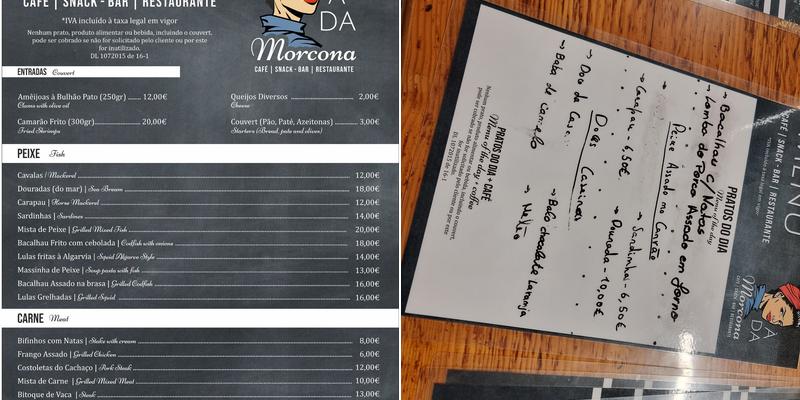 CAFÉ | SNACK - BAR | RESTAURANTE
*IVA incluído à taxa legal em vigor
Nenhum prato, produto alimentar ou bebida, incluindo o couvert,
pode ser cobrado se não for solicitado pelo cliente ou por este
for inutilizado.
DL 1072015 de 16-1
A
DA
Morcona
CAFÉ | SNACK - BAR | RESTAURANTE
ENTRADAS Couvert
Amêijoas à Bulhão Pato (250gr) ...... 12,00€
Clams with olive oil
Camarão Frito (300gr) 20,00€
Fried Shrimps
Queijos Diversos 2,00€
Cheese
Couvert (Pão, Paté, Azeitonas) 3,00€
Starters (Bread, pate and olives)
PEIXE Fish
Cavalas / Mackerel 12,00€
Douradas (do mar) | Sea Bream 18,00€
Carapau | Horse Mackerel 12,00€
Sardinhas | Sardines 14,00€
Mista de Peixe | Grilled Mixed Fish 20,00€
Bacalhau Frito com cebolada | Codfish with onions 18,00€
Lulas fritas à Algarvia | Squid Algarve Style 14,00€
Massinha de Peixe | Soup pasta with fish 13,00€
Bacalhau Assado na brasa | Grilled Codfish 16,00€
Lulas Grelhadas | Grilled Squid 16,00€
CARNE Meat
Bifinhos com Natas | Steaks with cream 8,00€
Frango Assado | Grilled Chicken 6,00€
Costoletas do Cachaço | Pork Steak 12,00€
Mista de Carne | Grilled Mixed Meat 10,00€
Bitoque de Vaca | Steak 13,00€
MENU
CAFÉ | SNACK - BAR | RESTAURANTE
A
DA
Morcona
PRATOS DO DIA
Menu of the day
→ Bacalhau c/ Natas
→ Lombo de Porco Assado em Forno
Peixe Assado no Carvão
→ Carapau - 6,50€
→ Sardinhas - 6,50€
→ Dourada - 10,00€
Doces Caseiros
→ Doce da Casa
→ Bolo chocolate Laranja
→ Baba de camelo
→ Melão
PRATOS DO DIA + CAFÉ
Menu of the day + coffee
Nenhum prato, produto alimentar ou bebida, incluindo o couvert,
pode ser cobrado se não for solicitado pelo cliente ou por este
for inutilizado.
DL 1072015 de 16-1